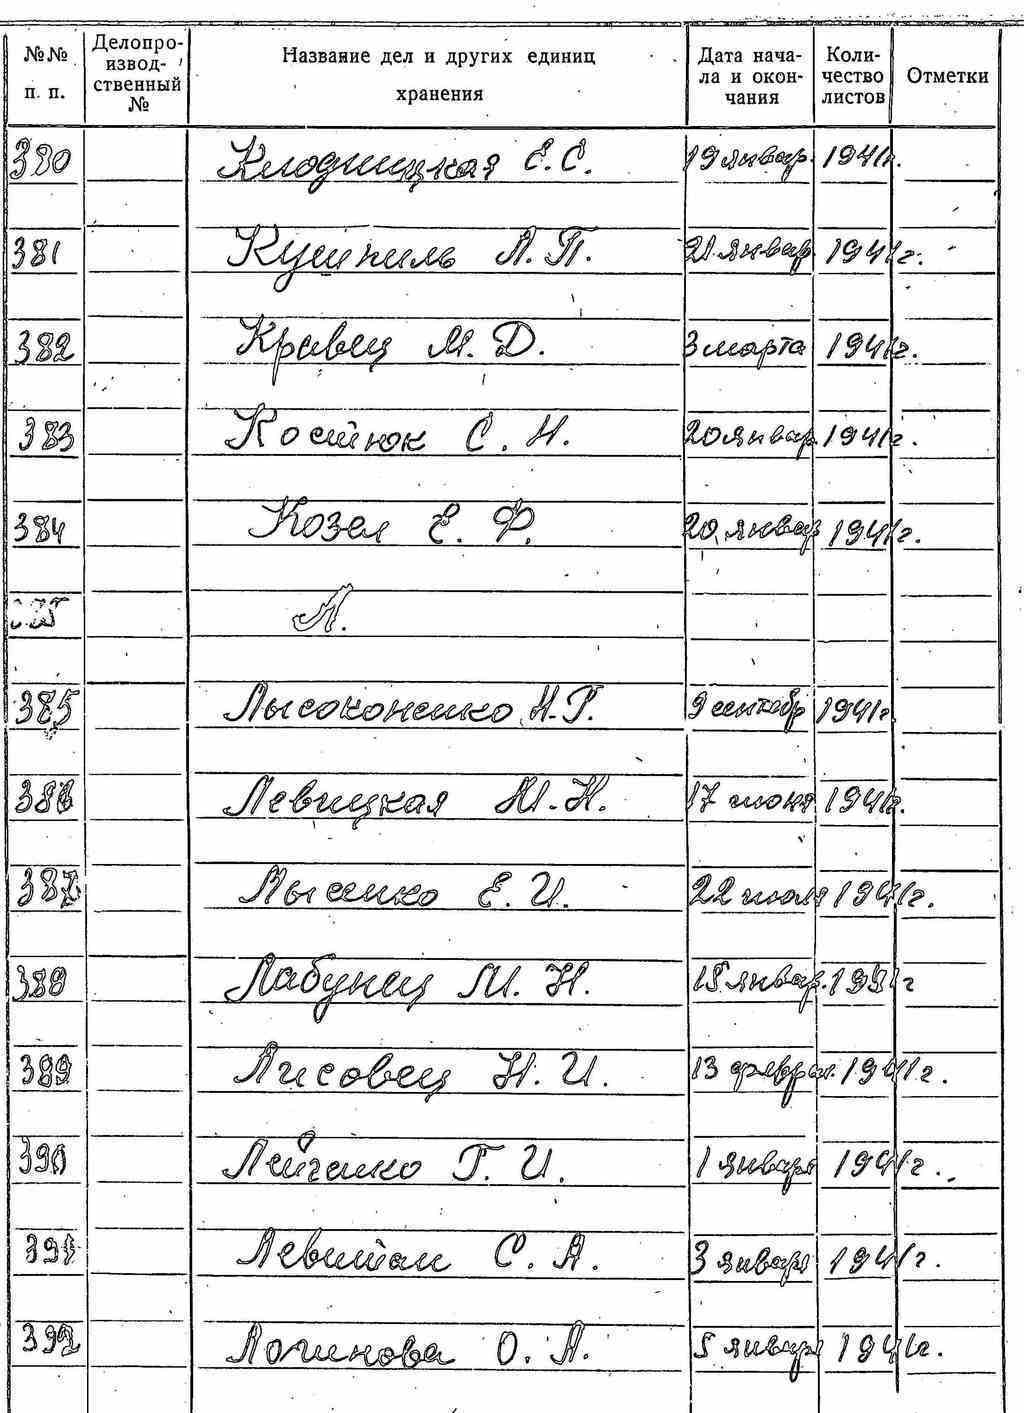 №№ п. п. Делопроизводственный № Название дел и других единиц хранения Дата начала и окончания Количество листов Отметки
380 Клодницкая Е. С. 19 январ. 1941г.
381 Кушниль А. П. 21 январ. 1941г.
382 Кравец М. Д. 3 марта 1941г.
383 Костюк С. Н. 20 январ. 1941г.
384 Козел Е. Ф. 20 январ 1941г.
Л.
385 Лысоконенко Н. Г. 9 сентябр 1941г.
386 Левицкая М. Н. 17 июня 1941г.
387 Лысенко Е. И. 22 июля 1941г.
Лабунец М. Н. 15 январ. г
389 Лисовец Н. И. 13 феврал. 1941г.
390 Лейченко Г. И. 1 января 1941г.
391 Левитан С. А. 3 января 1941г.
392 Логинова О. А. 5 января 1941г.